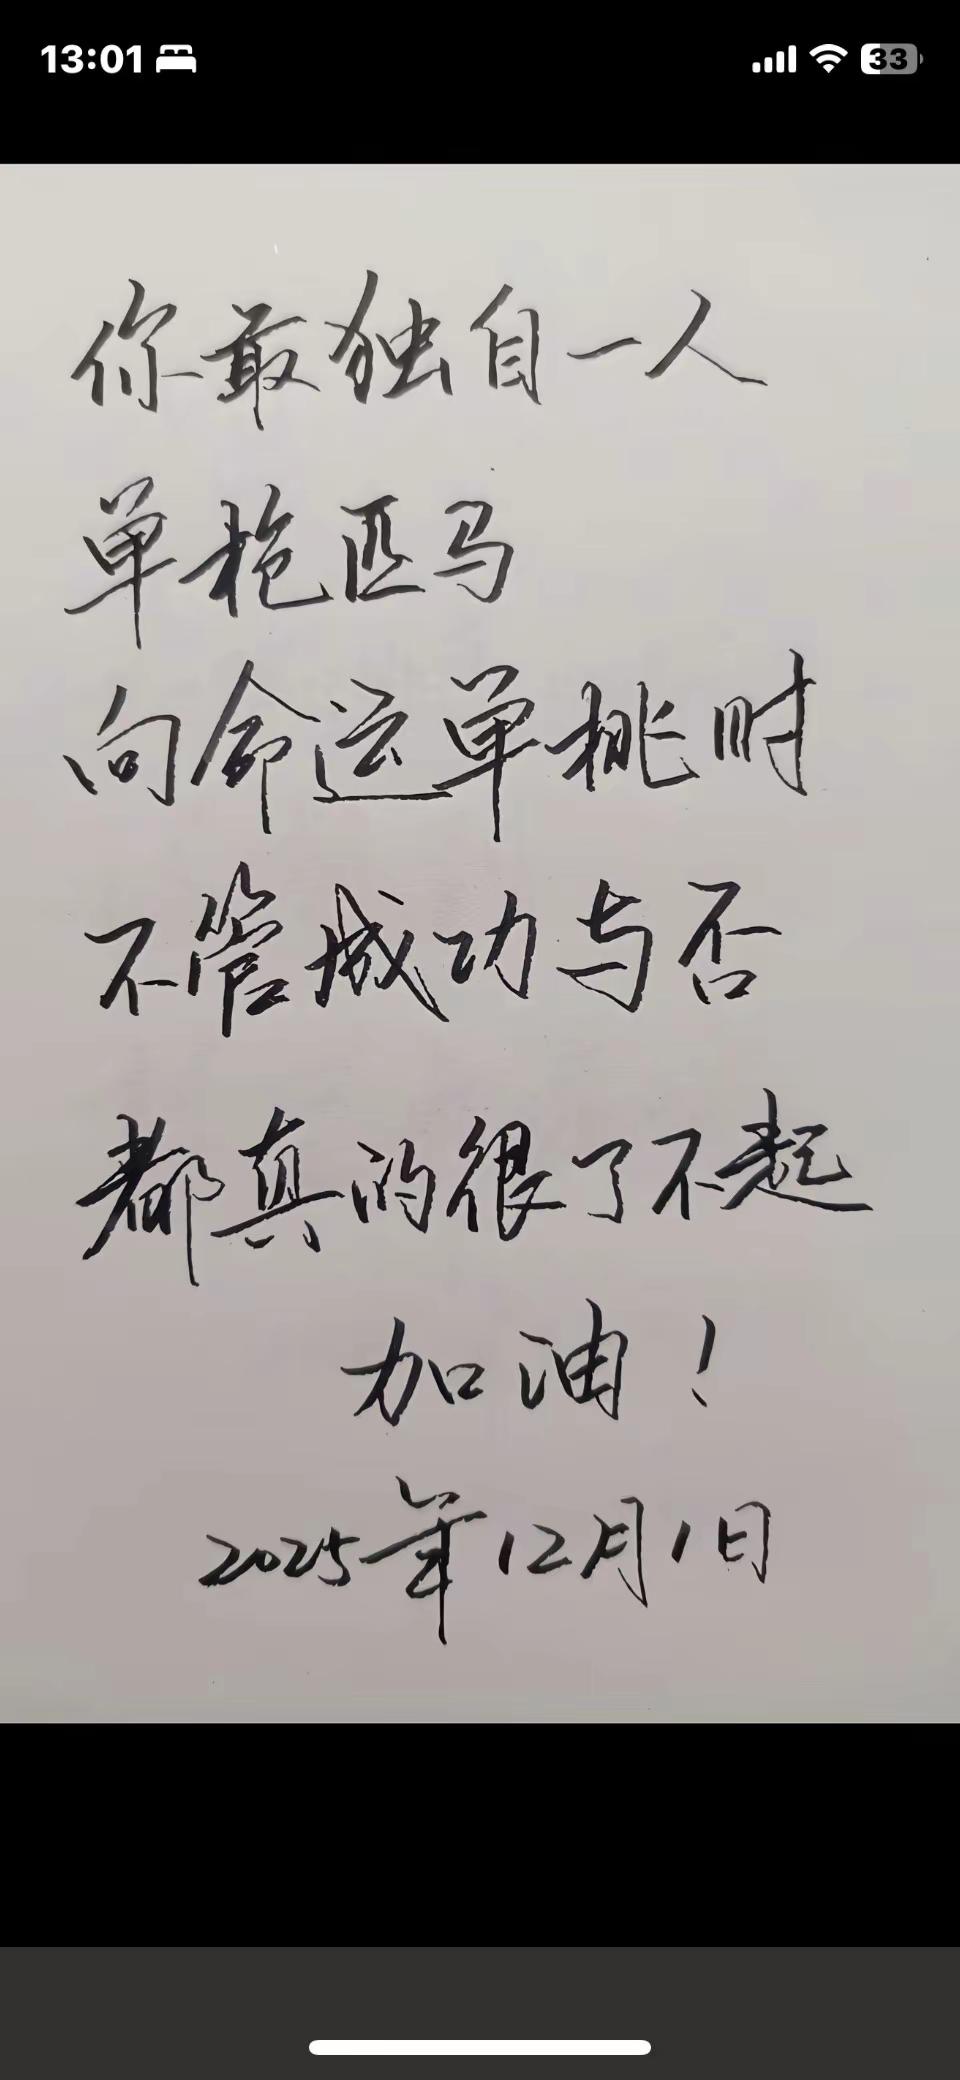 13:01
33
你最独自一人
单枪匹马
向命运单挑时
不管成功与否
都真的很了不起
加油！
2025年12月1日